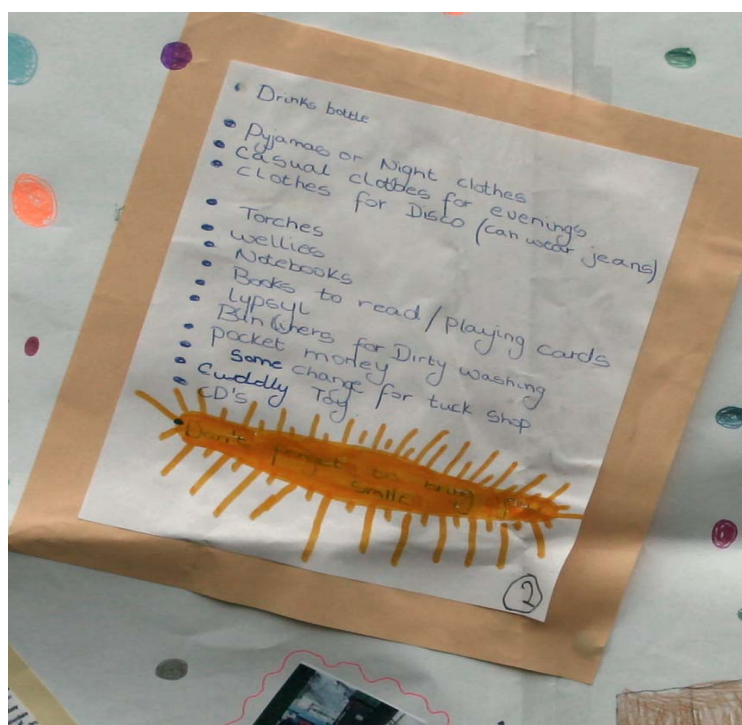 Drinks bottle
Pyjamas or Night clothes
Casual clothes for evenings
Clothes for Disco (can wear jeans)
Torches
wellies
Notebooks
Books to read/playing cards
Lypsyl
Bin liners for Dirty washing
pocket money
some change for tuck shop
Cuddly Toy
CD's
Don't forget to bring your
smile
2